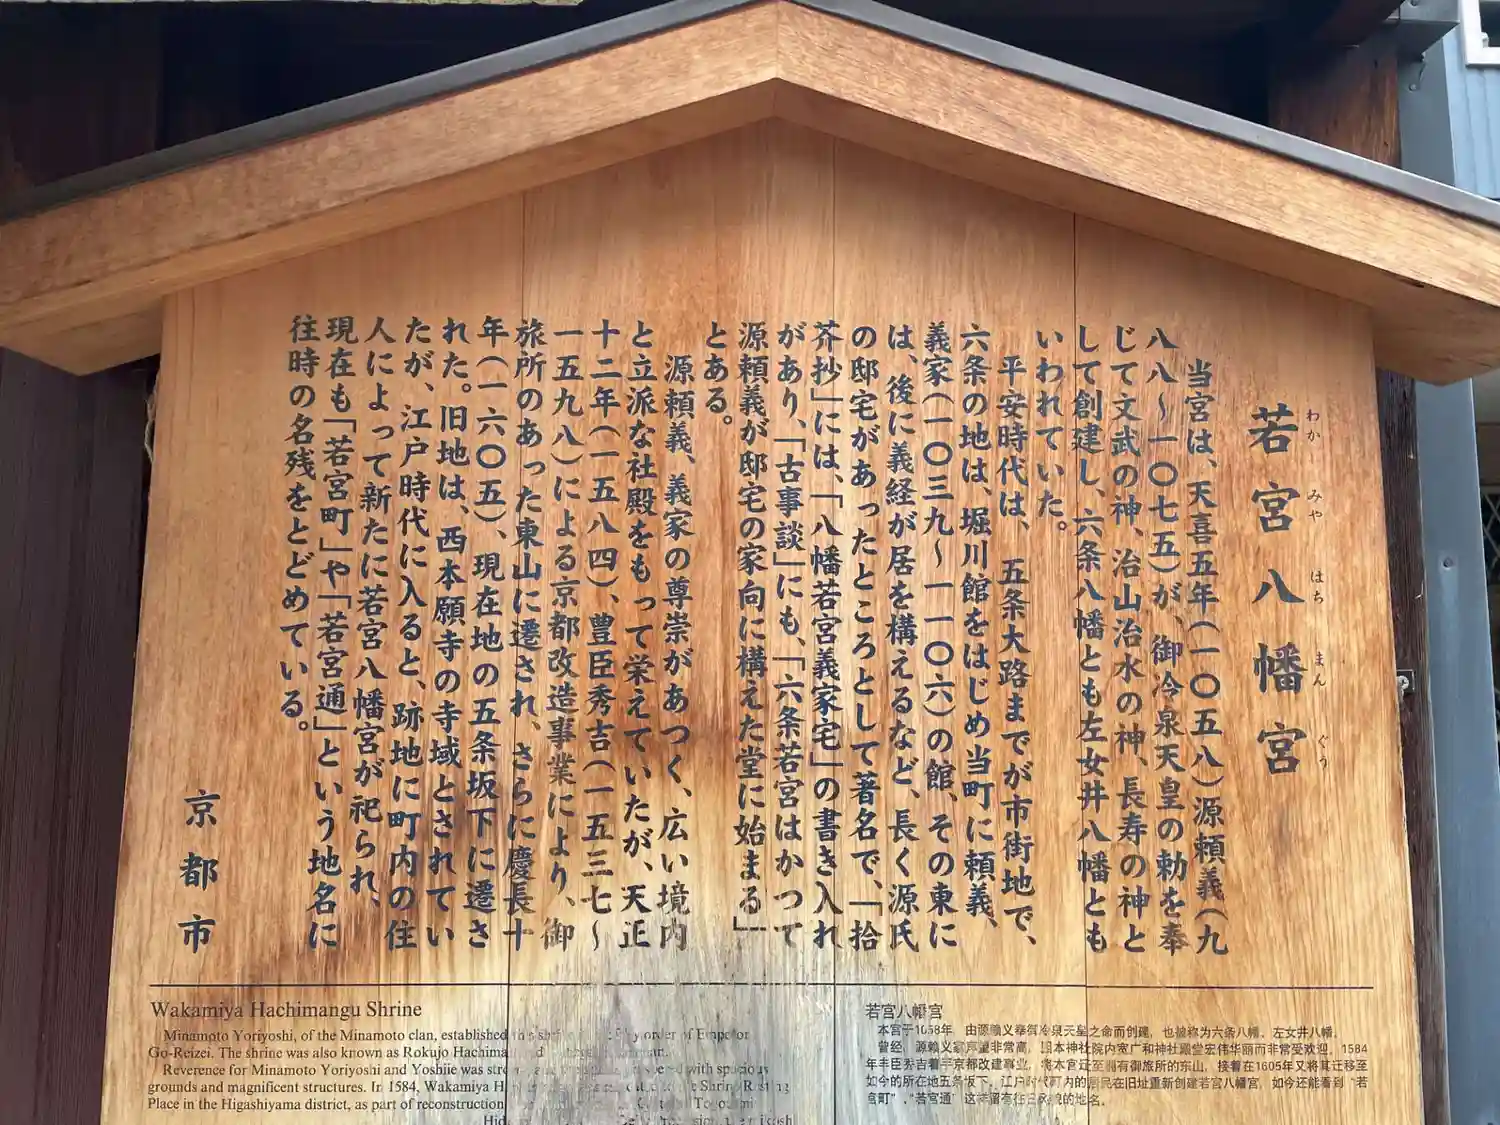 若宮八幡宮
わか みや はち まん ぐう
当宮は、天喜五年(一〇五八)源頼義(九
八八〜一〇七五)が、御冷泉天皇の勅を奉
じて文武の神、治山治水の神、長寿の神と
して創建し、六条八幡とも左女井八幡とも
いわれていた。
平安時代は、五条大路までが市街地で、
六条の地は、堀川館をはじめ当町に頼義、
義家(一〇三九〜一一〇六)の館、その東に
は、後に義経が居を構えるなど、長く源氏
の邸宅があったところとして著名で、「拾
芥抄」には、「八幡若宮義家宅」の書き入れ
があり、「古事談」にも、「六条若宮はかつて
源頼義が邸宅の家向に構えた堂に始まる」
とある。
源頼義、義家の尊崇があつく、広い境内
と立派な社殿をもって栄えていたが、天正
十二年(一五八四)、豊臣秀吉(一五三七〜
一五九八)による京都改造事業により、御
旅所のあった東山に遷され、さらに慶長十
年(一六〇五)、現在地の五条坂下に遷さ
れた。旧地は、西本願寺の寺域とされてい
たが、江戸時代に入ると、跡地に町内の住
人によって新たに若宮八幡宮が祀られ、
現在も「若宮町」や「若宮通」という地名に
往時の名残をとどめている。
京都市
Wakamiya Hachimangu Shrine
Minamoto Yoriyoshi, of the Minamoto clan, established this by order of Emperor
Go-Reizei. The shrine was also known as Rokujo
Reverence for Minamoto Yoriyoshi and Yoshiie was with spacious
grounds and magnificent structures. In 1584, Wakamiya to the Shrine Resting
Place in the Higashiyama district, as part of reconstruction
若宮八幡宮
本宮于1058年，由源赖义奉御冷泉天皇之命而创建，也被称为六条八幡、左女井八幡。
曾经，源赖义家声望非常高，本神社院内宽广和神社殿堂宏伟华丽而非常受欢迎。1584
年丰臣秀吉着手京都改建事业，将本宫迁至拥有御旅所的东山，接着在1605年又将其迁移至
如今的所在地五条坂下。江户时代町内的居民在旧址重新创建若宫八幡宫，如今还能看到“若
宫町”、“若宫通”这些 的地名。